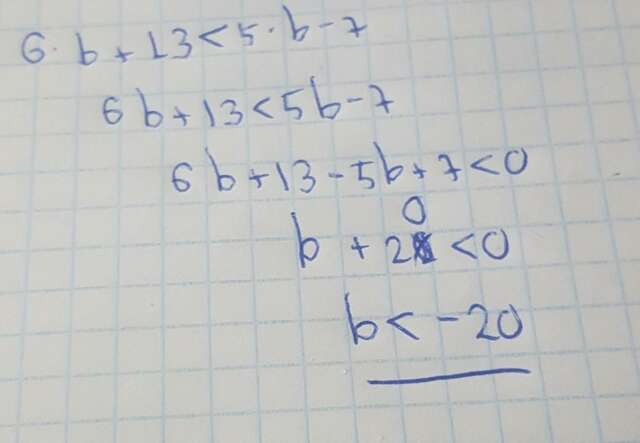 6·b+13<5·b-7
6b+13<5b-7
6b+13-5b+7<0
b+20<0
b<-20